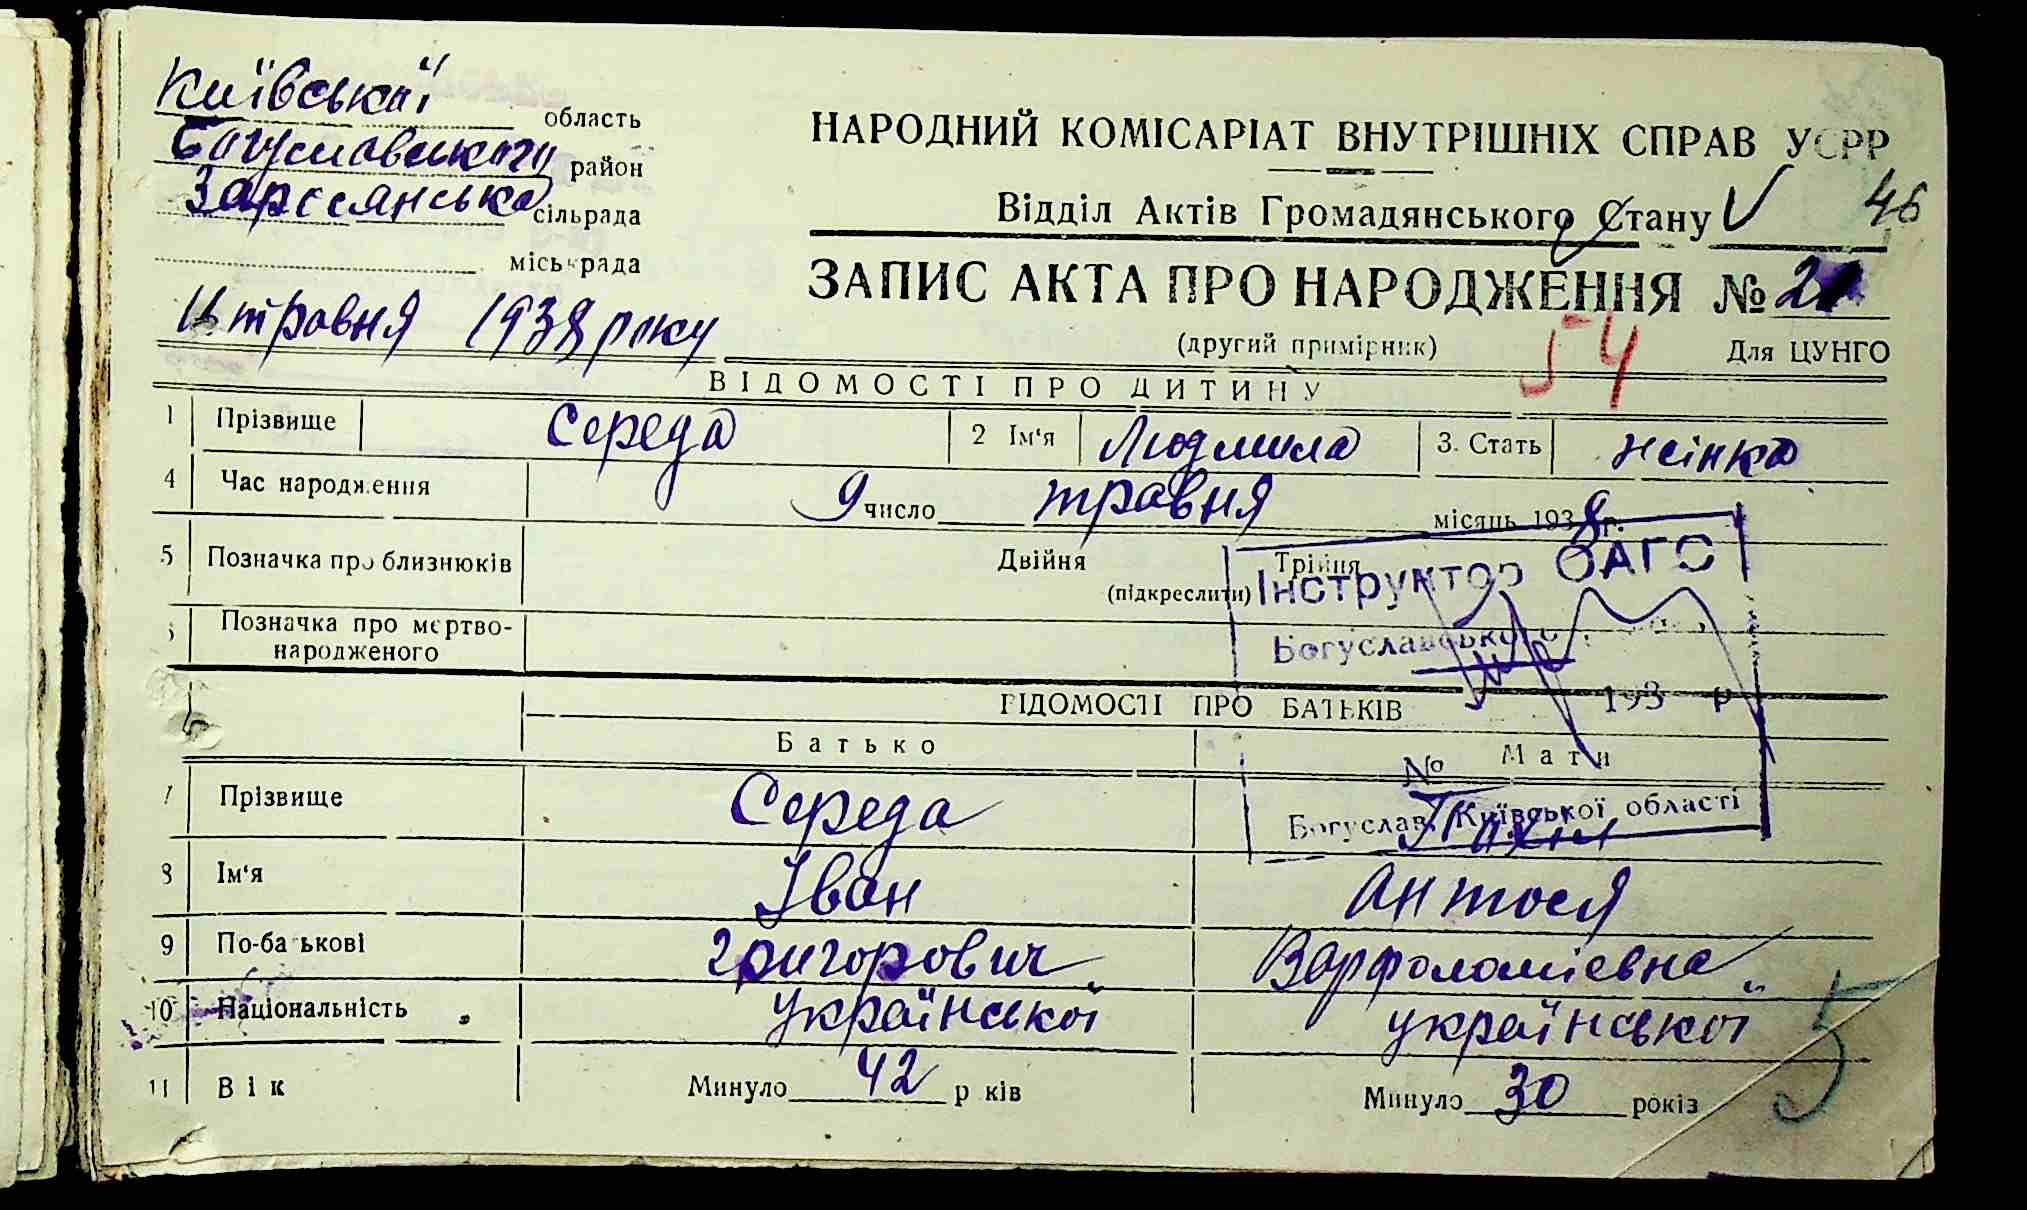 Київської область
Богуславського район
Зарєсянська сільрада
міськрада
травня 1938 року
НАРОДНИЙ КОМІСАРІАТ ВНУТРІШНІХ СПРАВ УСРР
Відділ Актів Громадянського Стану V 46
ЗАПИС АКТА ПРО НАРОДЖЕННЯ №
(другий примірник) 54 Для ЦУНГО
ВІДОМОСТІ ПРО ДИТИНУ
1 Прізвище Середа 2 Ім'я Людмила 3. Стать жінка
4 Час народження 9 число травня місяць 1938 г.
5 Позначка про близнюків Двійня Трійня
(підкреслити)
Інструктор ОАГС
Богуславського
193 р
№
Богуслав, Київської області
6 Позначка про мертво-
народженого
ВІДОМОСТІ ПРО БАТЬКІВ
Батько Мати
7 Прізвище Середа
8 Ім'я Іван Антося
9 По-батькові Григорович Варфоломієвна
10 Національність української української
11 Вік Минуло 42 років Минуло 30 років
5